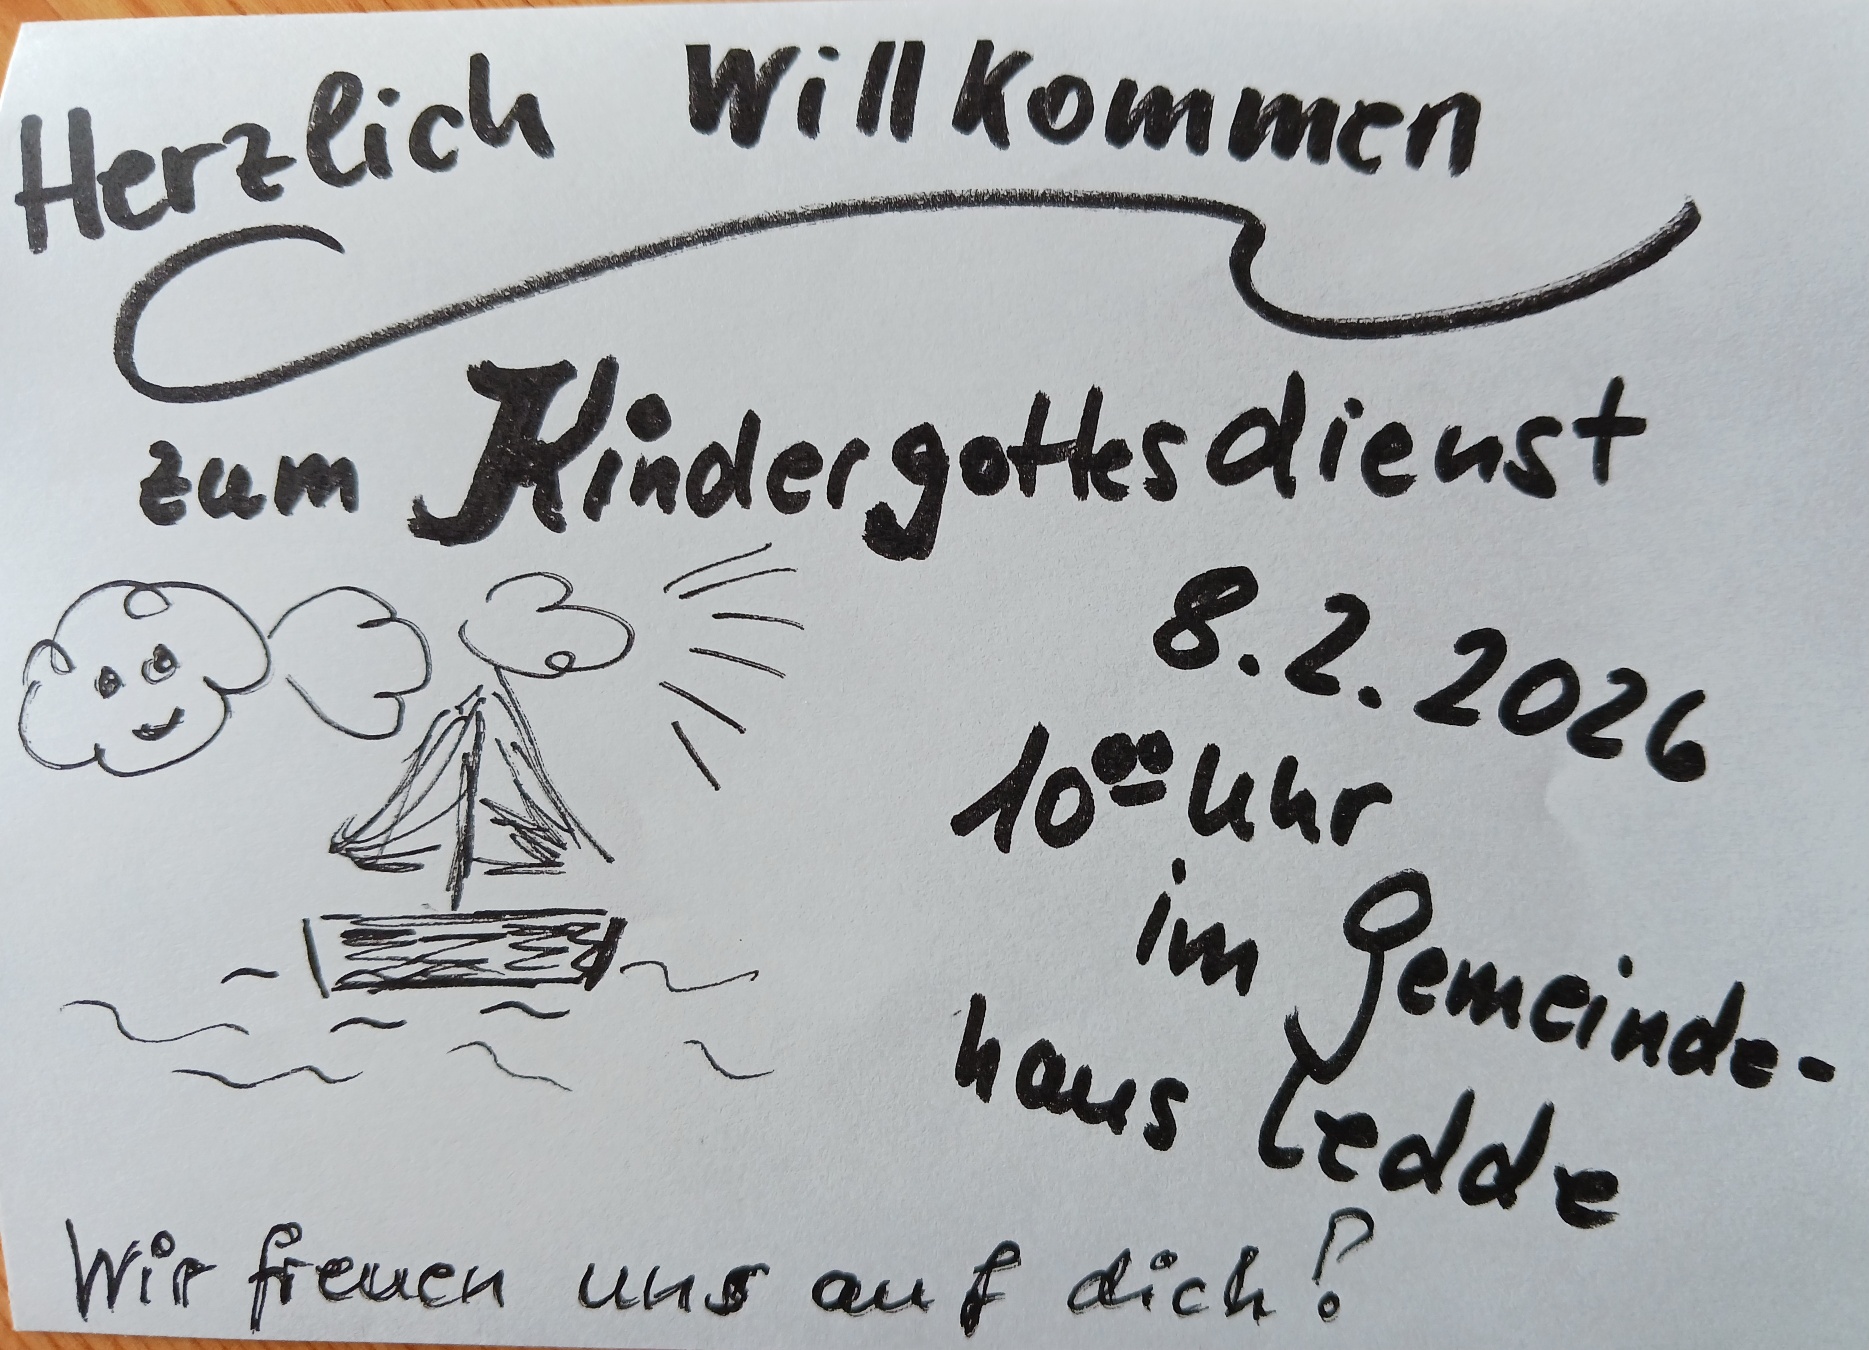 Herzlich Willkommen
zum Kindergottesdienst
8.2.2026
10⁰⁰ Uhr
im Gemeinde-
haus Ledde
Wir freuen uns auf dich!